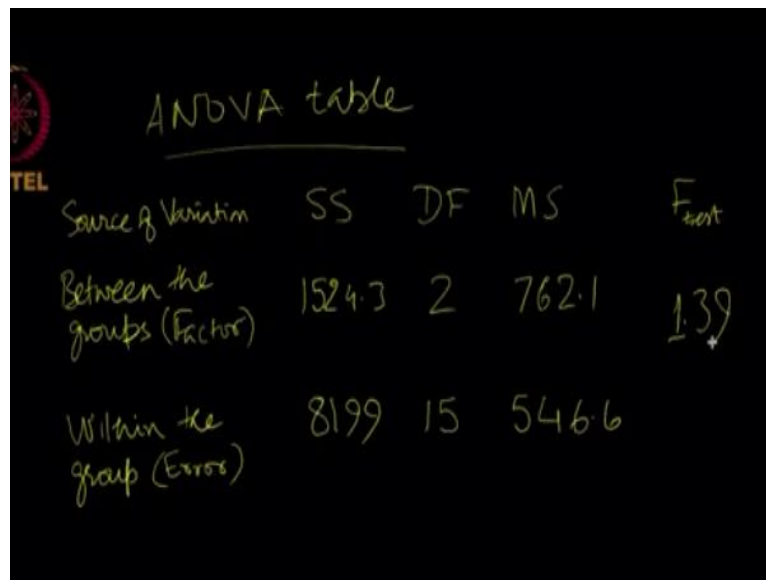 ANOVA table
TEL
Source of Variation SS DF MS F test
Between the
groups (Factor) 1524.3 2 762.1 1.39
Within the
group (Error) 8199 15 546.6